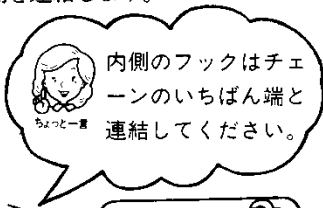 を連結します。
内側のフックはチェ
ーンのいちばん端と
連結してください。
ちょっと一言